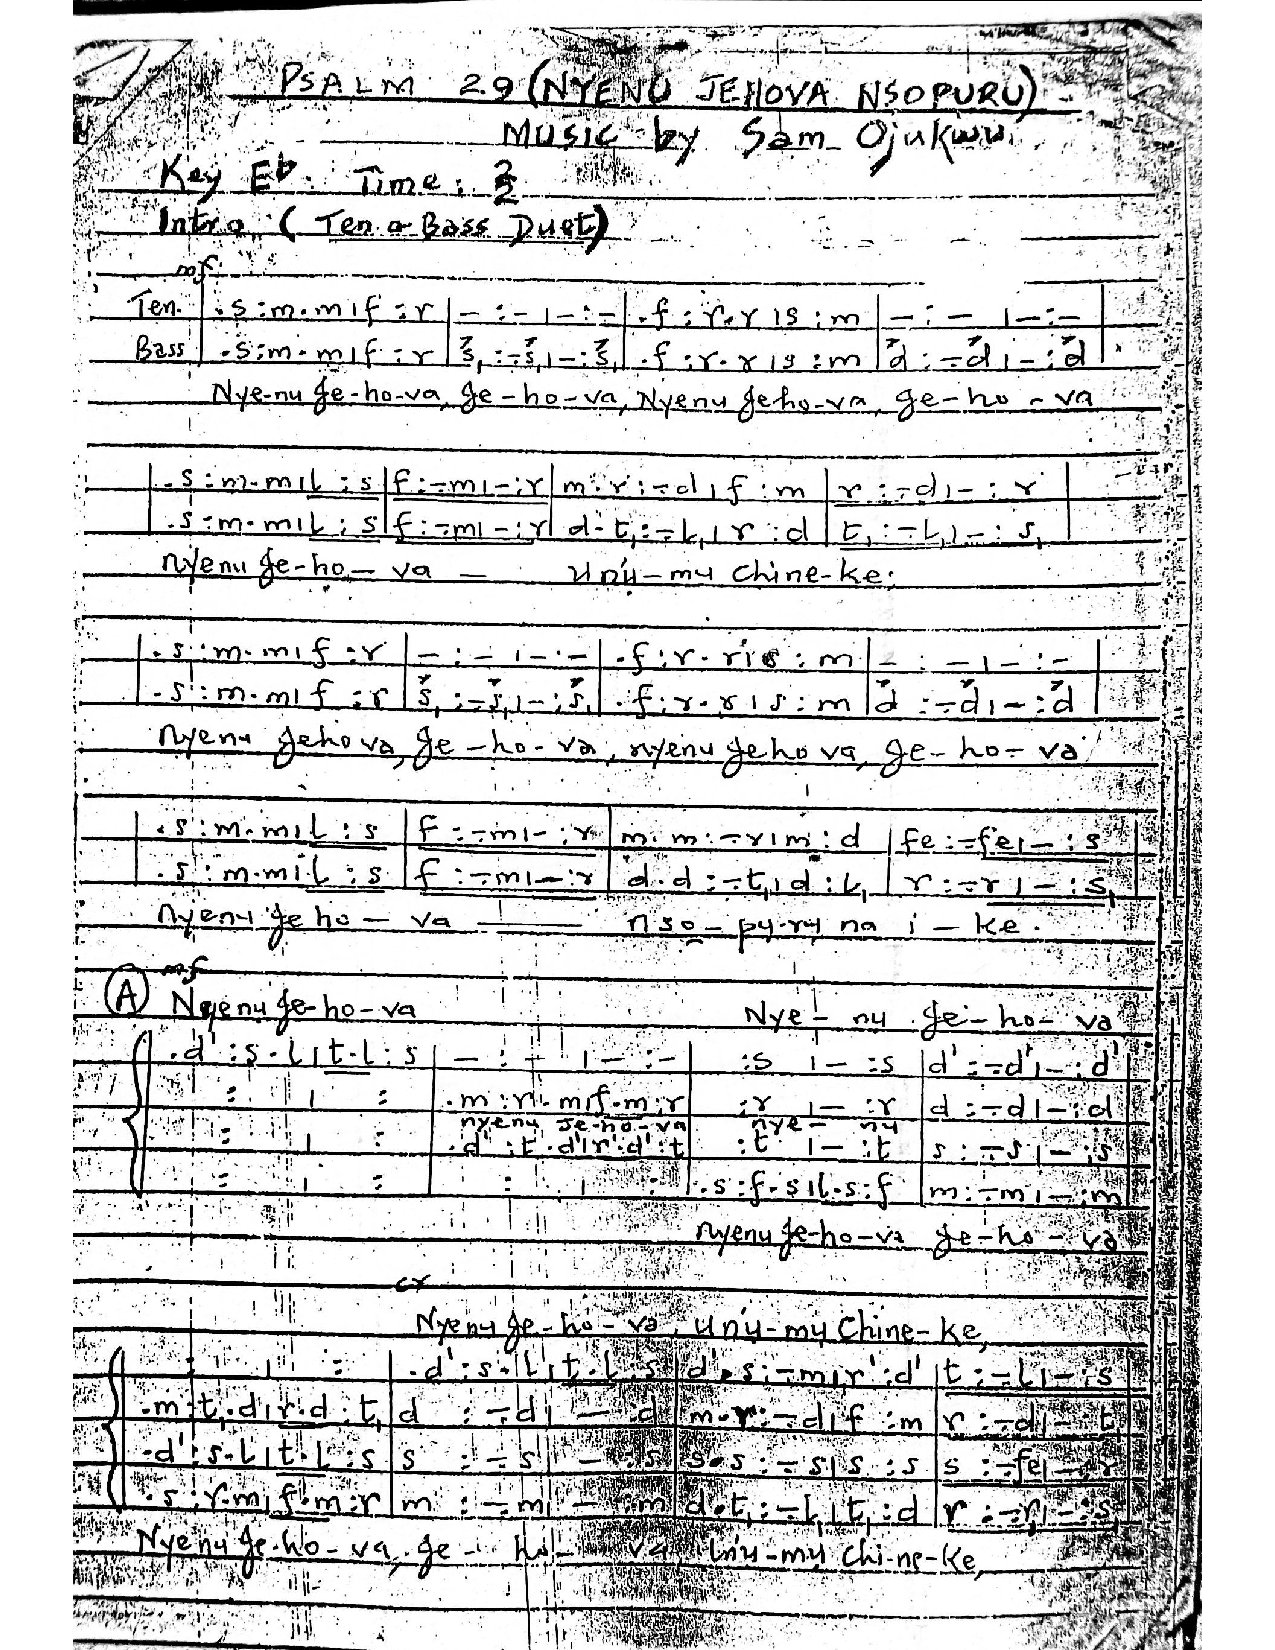 PSALM 29 (NYENU JEHOVA NSOPURU)
MUSIC by Sam Ojukwu
Key Eb. Time: 2/2
Intro. (Ten & Bass Duet)
mf
Ten. | .s :m.m | f :r | - :- | - :- | .f :r.r | s :m | - :- | - :- |
Bass | .s:m.m | f :r | s, :-.s, | - :s, | .f :r.r | s :m | d :-.d | - :d
Nye-nu Je-ho-va, Je-ho-va, Nyenu Jeho-va, Je-ho-va
| .s :m.m | l :s | f :-.m | - :r | m.r :-.d | f :m | r :-.d | - :r |
| .s :m.m | l :s | f :-.m | - :r | d.t, :-.l, | r :d | t, :-.l, | - :s, |
Nyenu Je-ho-va — Unu-mu Chine-ke.
| .s :m.m | f :r | - :- | - :- | .f :r.r | s :m | - :- | - :- |
| .s :m.m | f :r | s, :-.s, | - :s, | .f :r.r | s :m | d :-.d | - :d |
Nyenu Jehova, Je-ho-va, nyenu Jehova, Je-ho-va
| .s :m.m | l :s | f :-.m | - :r | m.m :-.r | m :d | fe :-.fe | - :s
| .s :m.m | l :s | f :-.m | - :r | d.d :-.t, | d :l, | r :-.r | - :s,
Nyenu Jeho-va — nso-pu-ru na i-ke.
mf
(A) Nyenu Je-ho-va Nye-nu Je-ho-va
.d' :s.l | t.l :s | - :- | - :- | :s | - :s | d' :-.d' | - :d'
: | : | .m :r.m | f.m :r | :r | - :r | d :-.d | - :d
nyenu Je-ho-va nye-nu
: | : | .d' :t.d' | r'.d' :t | :t | - :t | s :-.s | - :s
: | : | : | : | .s :f.s | l.s :f | m :-.m | - :m
Nyenu Je-ho-va Je-ho-va
cr
Nyenu Je-ho-va, Unu-mu Chine-ke,
: | : | .d' :s.l | t.l :s | d'.s :-.m | r' :d' | t :-.l | - :s
.m :t,.d | r.d :t, | d :-.d | - :d | m.r :-.d | f :m | r :-.d | - t
.d' :s.l | t.l :s | s :-.s | - :s | s.s :-.s | s :s | s :-.fe | - :r
.s :r.m | f.m :r | m :-.m | - :m | d.t, :-.l, | t, :d | r :-.r, | - :s,
Nyenu Je-ho-va, Je-ho-va, Unu-mu Chi-ne-Ke,